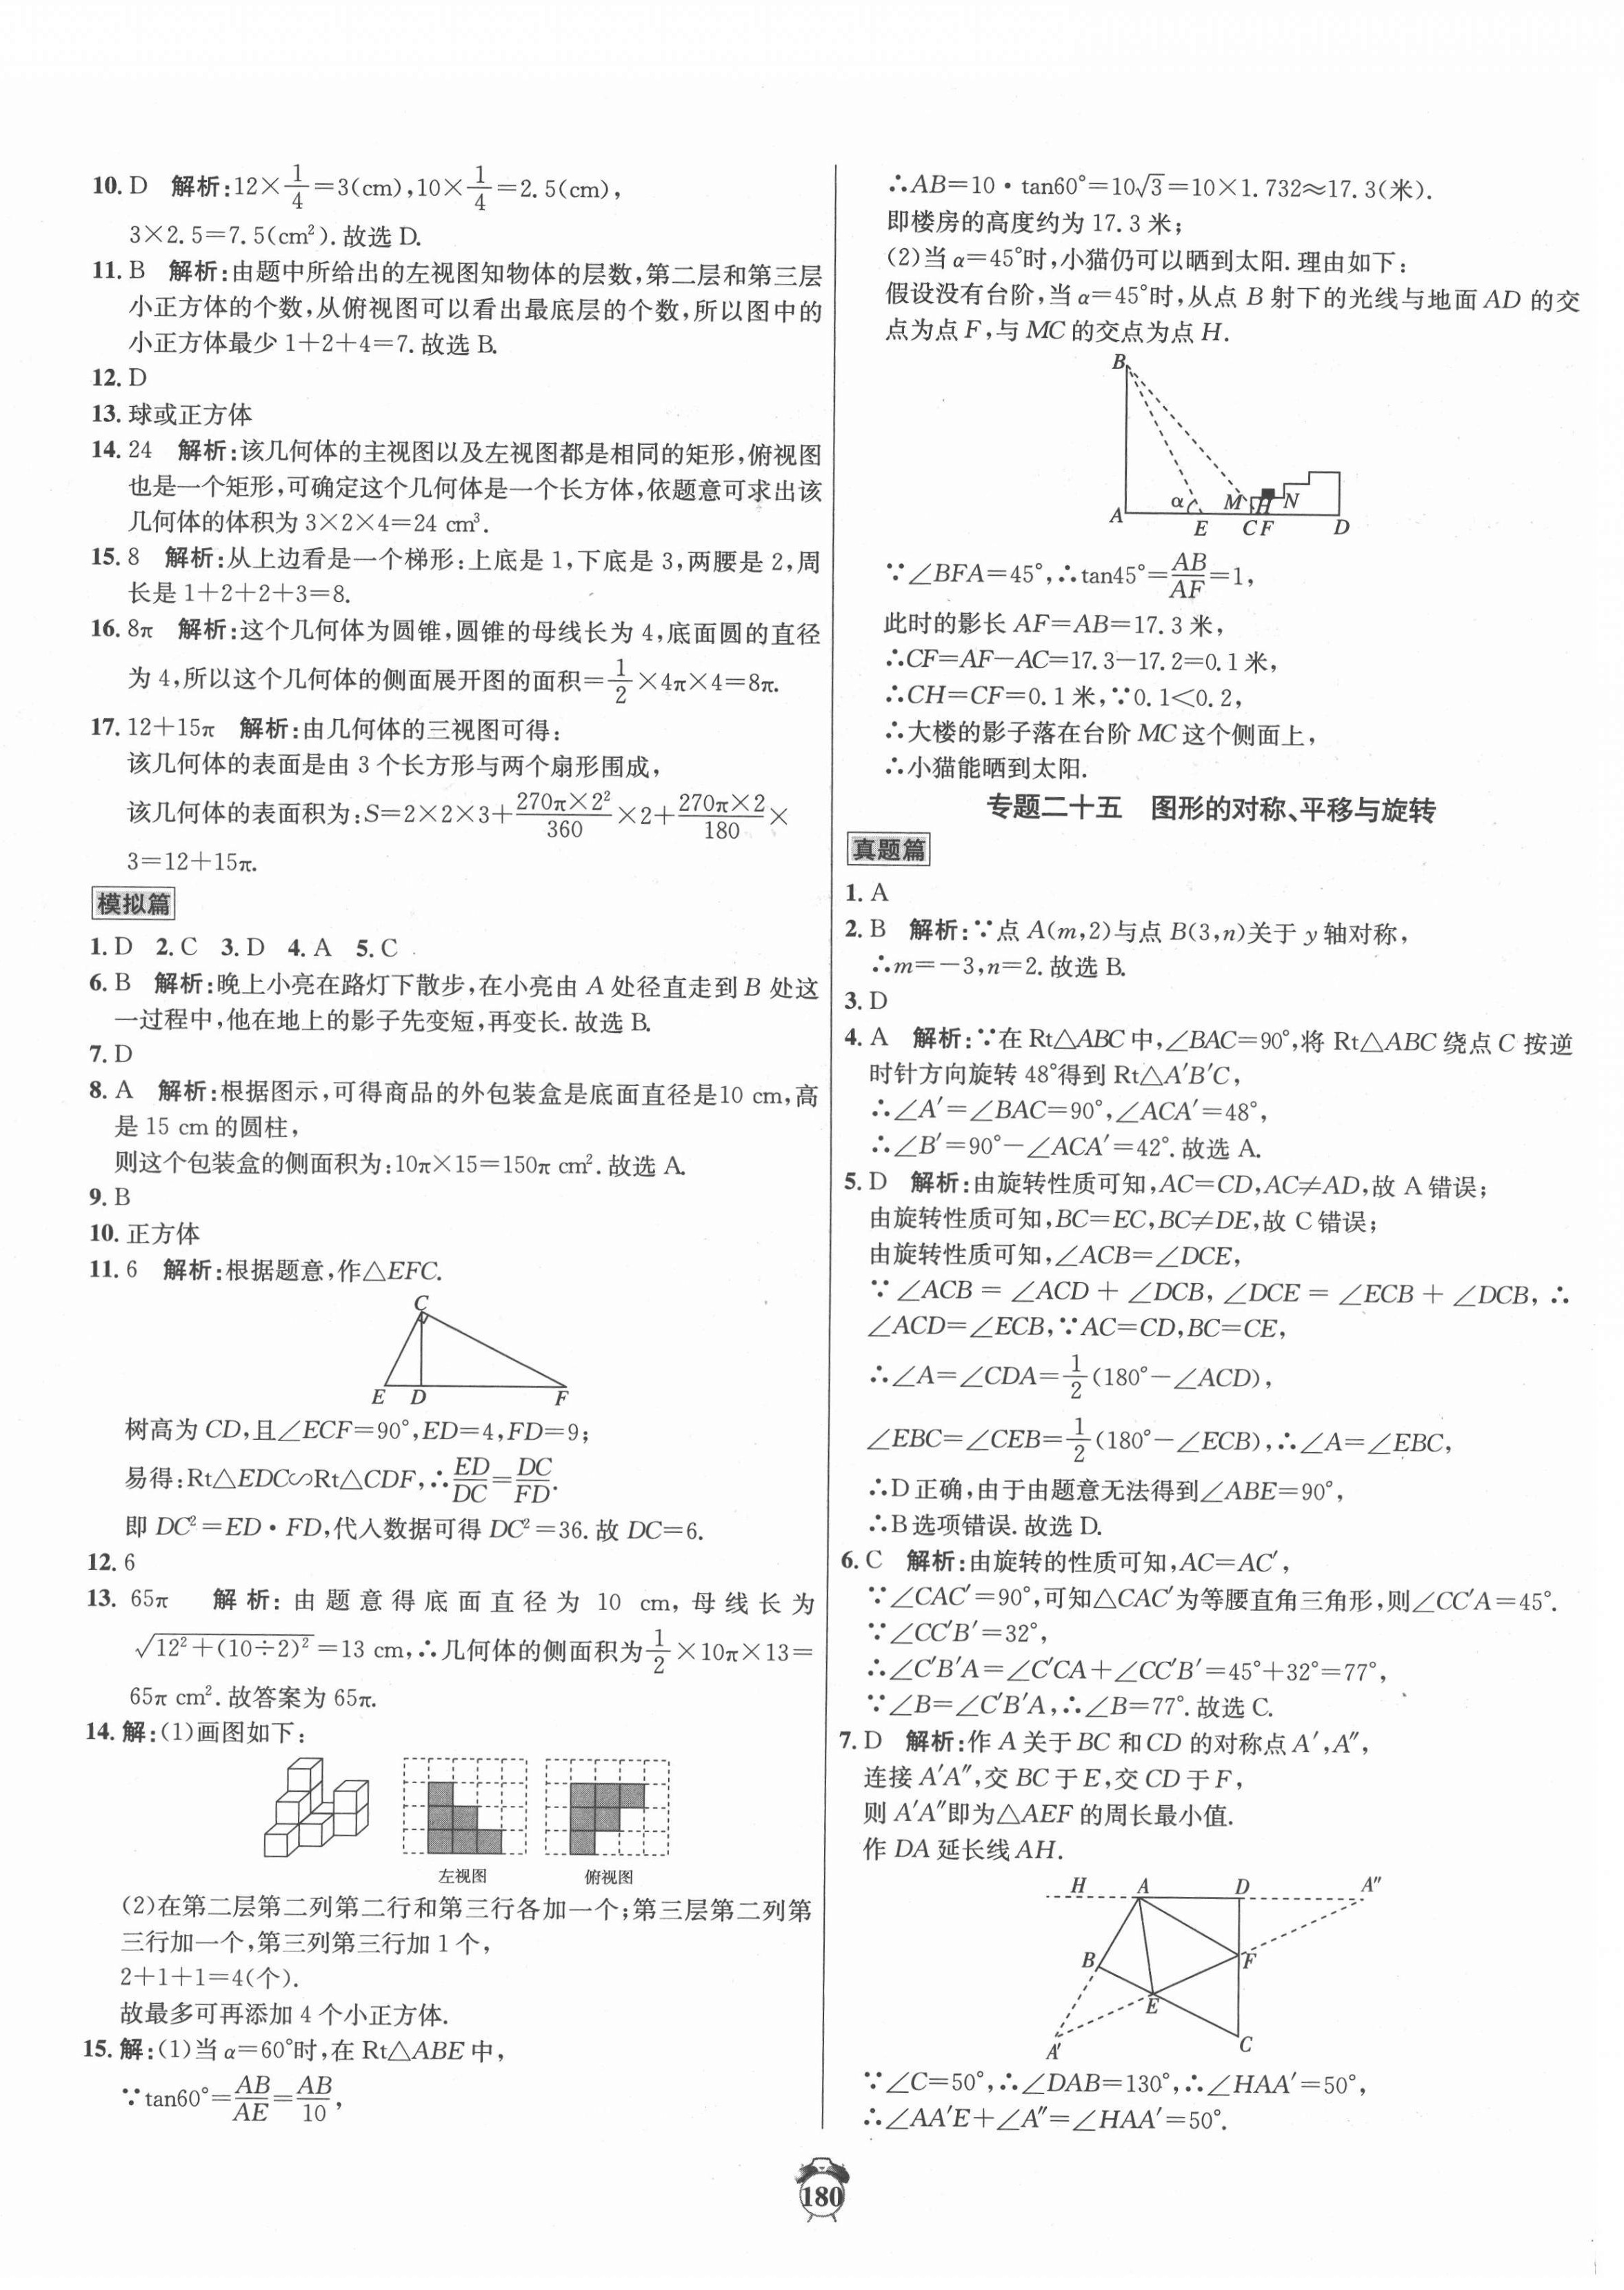 10. D 解析:12×1/4=3(cm),10×1/4=2.5(cm),
3×2.5=7.5(cm²).故选 D.
11. B 解析:由题中所给出的左视图知物体的层数,第二层和第三层
小正方体的个数,从俯视图可以看出最底层的个数,所以图中的
小正方体最少 1+2+4=7.故选 B.
12. D
13. 球或正方体
14. 24 解析:该几何体的主视图以及左视图都是相同的矩形,俯视图
也是一个矩形,可确定这个几何体是一个长方体,依题意可求出该
几何体的体积为 3×2×4=24 cm³.
15. 8 解析:从上边看是一个梯形:上底是 1,下底是 3,两腰是 2,周
长是 1+2+2+3=8.
16. 8π 解析:这个几何体为圆锥,圆锥的母线长为 4,底面圆的直径
为 4,所以这个几何体的侧面展开图的面积=1/2×4π×4=8π.
17. 12+15π 解析:由几何体的三视图可得:
该几何体的表面是由 3 个长方形与两个扇形围成,
该几何体的表面积为:S=2×2×3+270π×2²/360×2+270π×2/180×
3=12+15π.
模拟篇
1. D 2. C 3. D 4. A 5. C
6. B 解析:晚上小亮在路灯下散步,在小亮由 A 处径直走到 B 处这
一过程中,他在地上的影子先变短,再变长.故选 B.
7. D
8. A 解析:根据图示,可得商品的外包装盒是底面直径是10 cm,高
是 15 cm 的圆柱,
则这个包装盒的侧面积为:10π×15=150π cm².故选 A.
9. B
10. 正方体
11. 6 解析:根据题意,作△EFC.
C
E D F
树高为 CD,且∠ECF=90°,ED=4,FD=9;
易得:Rt△EDC∽Rt△CDF,∴ED/DC=DC/FD.
即 DC²=ED·FD,代入数据可得 DC²=36.故 DC=6.
12. 6
13. 65π 解析:由题意得底面直径为 10 cm,母线长为
√(12²+(10÷2)²)=13 cm,∴几何体的侧面积为1/2×10π×13=
65π cm².故答案为 65π.
14. 解:(1)画图如下:
左视图 俯视图
(2)在第二层第二列第二行和第三行各加一个;第三层第二列第
三行加一个,第三列第三行加 1 个,
2+1+1=4(个).
故最多可再添加 4 个小正方体.
15. 解:(1)当 α=60°时,在 Rt△ABE 中,
∵tan60°=AB/AE=AB/10,
∴AB=10·tan60°=10√3=10×1.732≈17.3(米).
即楼房的高度约为 17.3 米;
(2)当 α=45°时,小猫仍可以晒到太阳.理由如下:
假设没有台阶,当 α=45°时,从点 B 射下的光线与地面 AD 的交
点为点 F,与 MC 的交点为点 H.
B
α M H N
A E C F D
∵∠BFA=45°,∴tan45°=AB/AF=1,
此时的影长 AF=AB=17.3 米,
∴CF=AF−AC=17.3−17.2=0.1 米,
∴CH=CF=0.1 米,∵0.1<0.2,
∴大楼的影子落在台阶 MC 这个侧面上,
∴小猫能晒到太阳.
专题二十五 图形的对称、平移与旋转
真题篇
1. A
2. B 解析:∵点 A(m,2)与点 B(3,n)关于 y 轴对称,
∴m=−3,n=2.故选 B.
3. D
4. A 解析:∵在 Rt△ABC 中,∠BAC=90°,将 Rt△ABC 绕点 C 按逆
时针方向旋转 48°得到 Rt△A′B′C,
∴∠A′=∠BAC=90°,∠ACA′=48°,
∴∠B′=90°−∠ACA′=42°.故选 A.
5. D 解析:由旋转性质可知,AC=CD,AC≠AD,故 A 错误;
由旋转性质可知,BC=EC,BC≠DE,故 C 错误;
由旋转性质可知,∠ACB=∠DCE,
∵∠ACB=∠ACD+∠DCB,∠DCE=∠ECB+∠DCB,∴
∠ACD=∠ECB,∵AC=CD,BC=CE,
∴∠A=∠CDA=1/2(180°−∠ACD),
∠EBC=∠CEB=1/2(180°−∠ECB),∴∠A=∠EBC,
∴D 正确,由于由题意无法得到∠ABE=90°,
∴B 选项错误.故选 D.
6. C 解析:由旋转的性质可知,AC=AC′,
∵∠CAC′=90°,可知△CAC′为等腰直角三角形,则∠CC′A=45°.
∵∠CC′B′=32°,
∴∠C′B′A=∠C′CA+∠CC′B′=45°+32°=77°,
∵∠B=∠C′B′A,∴∠B=77°.故选 C.
7. D 解析:作 A 关于 BC 和 CD 的对称点 A′,A″,
连接 A′A″,交 BC 于 E,交 CD 于 F,
则 A′A″即为△AEF 的周长最小值.
作 DA 延长线 AH.
H A D A″
B F
E
A′ C
∵∠C=50°,∴∠DAB=130°,∴∠HAA′=50°,
∴∠AA′E+∠A″=∠HAA′=50°.
180